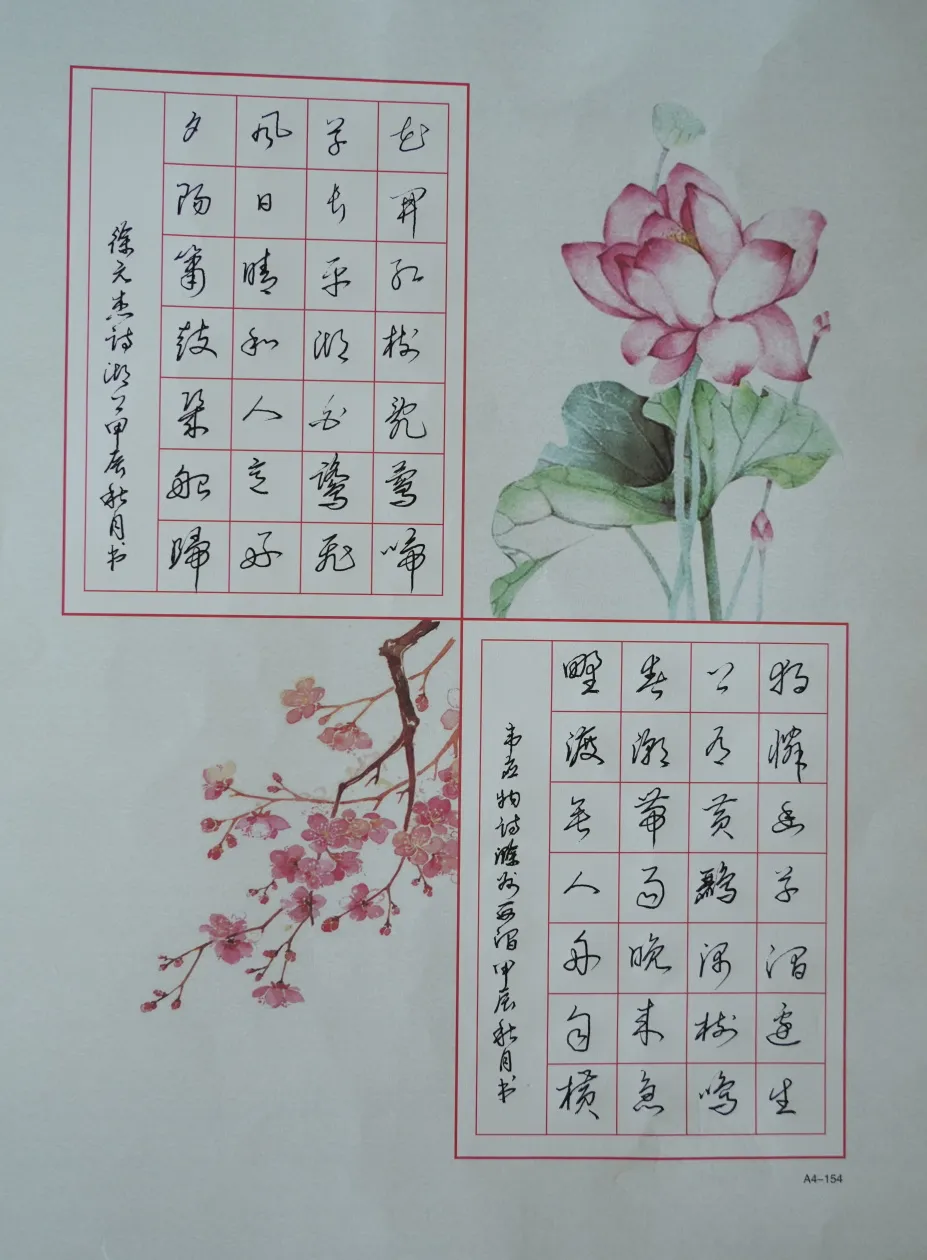 花開红树乱莺啼
草长平湖白鹭飛
風日晴和人意好
夕陽箫鼓幾船歸
徐元杰诗湖上甲辰秋月书
独憐幽草涧邊生
上有黄鸝深树鸣
春潮帶雨晚来急
野渡无人舟自横
韦应物诗滁州西涧甲辰秋月书
A4-154